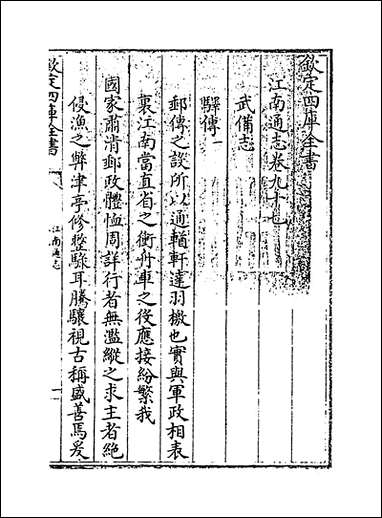 欽定四庫全書
江南通志卷九十七
武備志
驛傳一
郵傳之設所以通輶軒達羽檄也實與軍政相表
裏江南當直省之衝舟車之役應接紛繁我
國家肅清郵政體恤周詳行者無濫縱之求主者絶
侵漁之弊津亭修整騄耳騰驤視古稱盛善焉爰
欽定四庫全書
江南通志
一